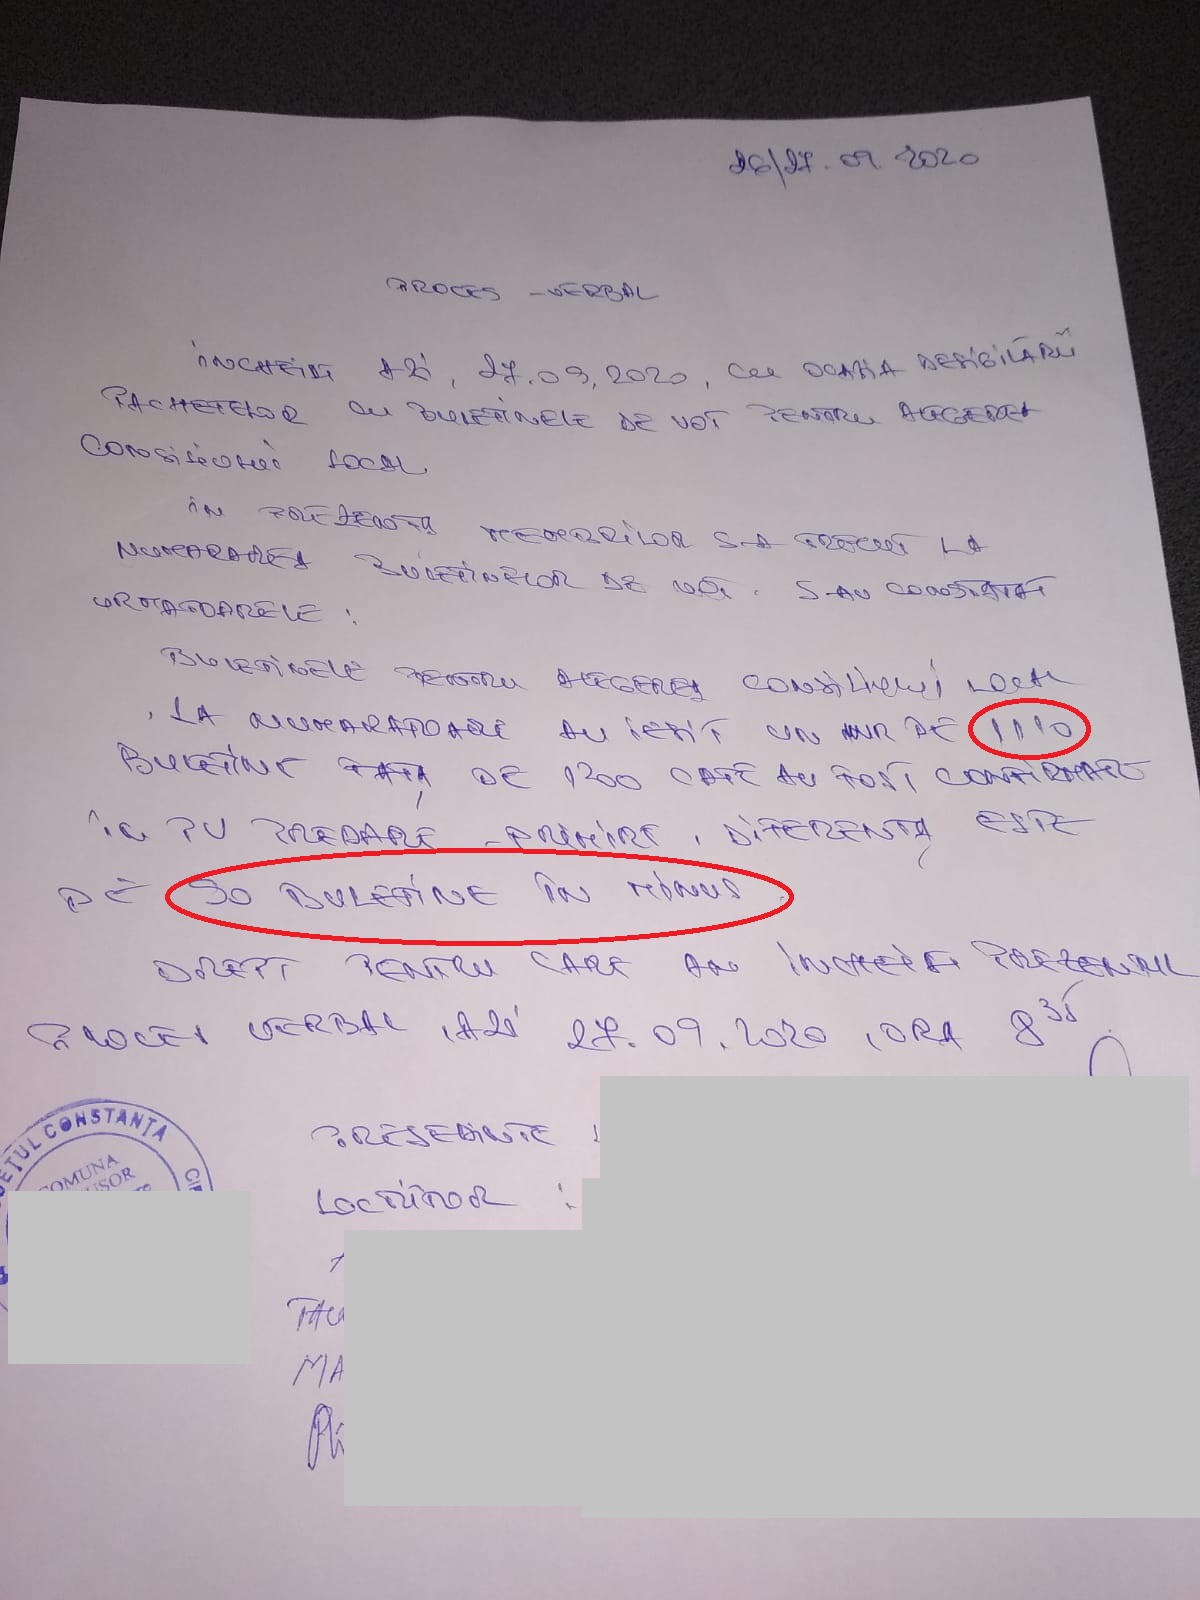 26/27.09.2020
PROCES-VERBAL
ÎNCHEIAT AZI, 27.09.2020, cu OCAZIA DESIGILĂRII
PACHETELOR cu BULETINELE DE VOT PENTRU ALEGEREA
CONSILIULUI LOCAL
ÎN PREZENȚA MEMBRILOR S-A TRECUT LA
NUMARAREA BULETINELOR DE VOT. S-AU CONSTATAT
URMATOARELE:
BULETINELE PENTRU ALEGEREA CONSILIULUI LOCAL
, LA NUMARATOARE AU IEȘIT UN NR DE 1110
BULETINE FAȚA DE 1200 CATE AU FOST CONFIRMATE
în PV PREDARE-PRIMIRE, DIFERENȚA ESTE
DE 90 BULETINE ÎN MINUS.
DREPT PENTRU CARE AM ÎNCHEIAT PREZENTUL
PROCES VERBAL, AZI 27.09.2020, ORA 8 35
PRESEDINTE
LOCTIITOR:
MA
JUDEȚUL CONSTANȚA
COMUNA